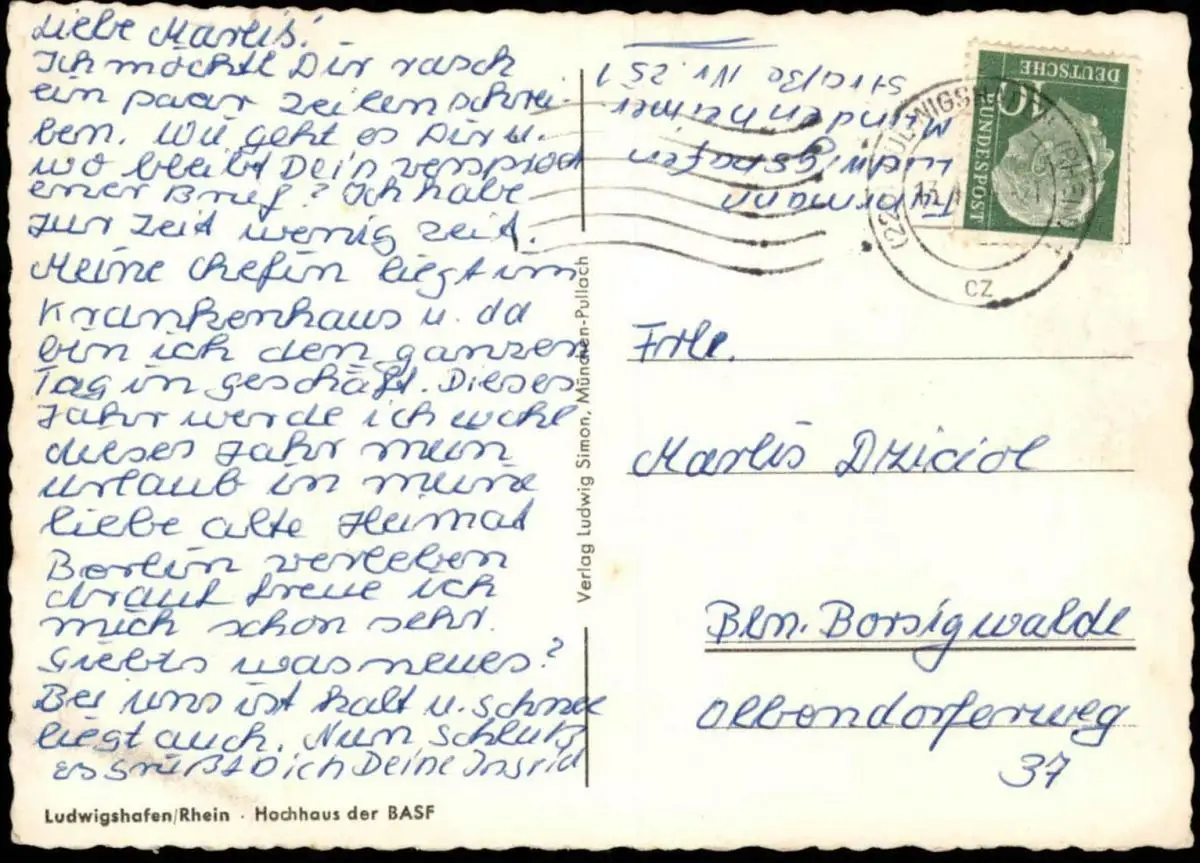 Liebe Marlis!
Ich möchte Dir rasch
ein paar zeilen schrei-
ben. Wie geht es Dir u.
wo bleibt Dein versproch
ener Brief? Ich habe
zur Zeit wenig zeit.
Meine Chefin liegt im
Krankenhaus u. da
bin ich den ganzen
Tag im geschäft. Dieses
Jahr werde ich wohl
dieses Jahr mein
urlaub in meine
liebe alte Heimat
Berlin verleben
darauf freue ich
mich schon sehr.
Giebts was neues?
Bei uns ist kalt u. schnee
liegt auch. Nun Schluß
es grüßt Dich Deine Ingrid
Ludwigshafen/Rhein · Hochhaus der BASF
Verlag Ludwig Simon, München-Pullach
Ludwigshafen
Mundenheimer
straße Nr. 251
DEUTSCHE
BUNDESPOST
10
LUDWIGSHAFEN
(RHEIN)
cz
Frle.
Marlis Dziciol
Bln. Borsigwalde
Olbendorferweg
37